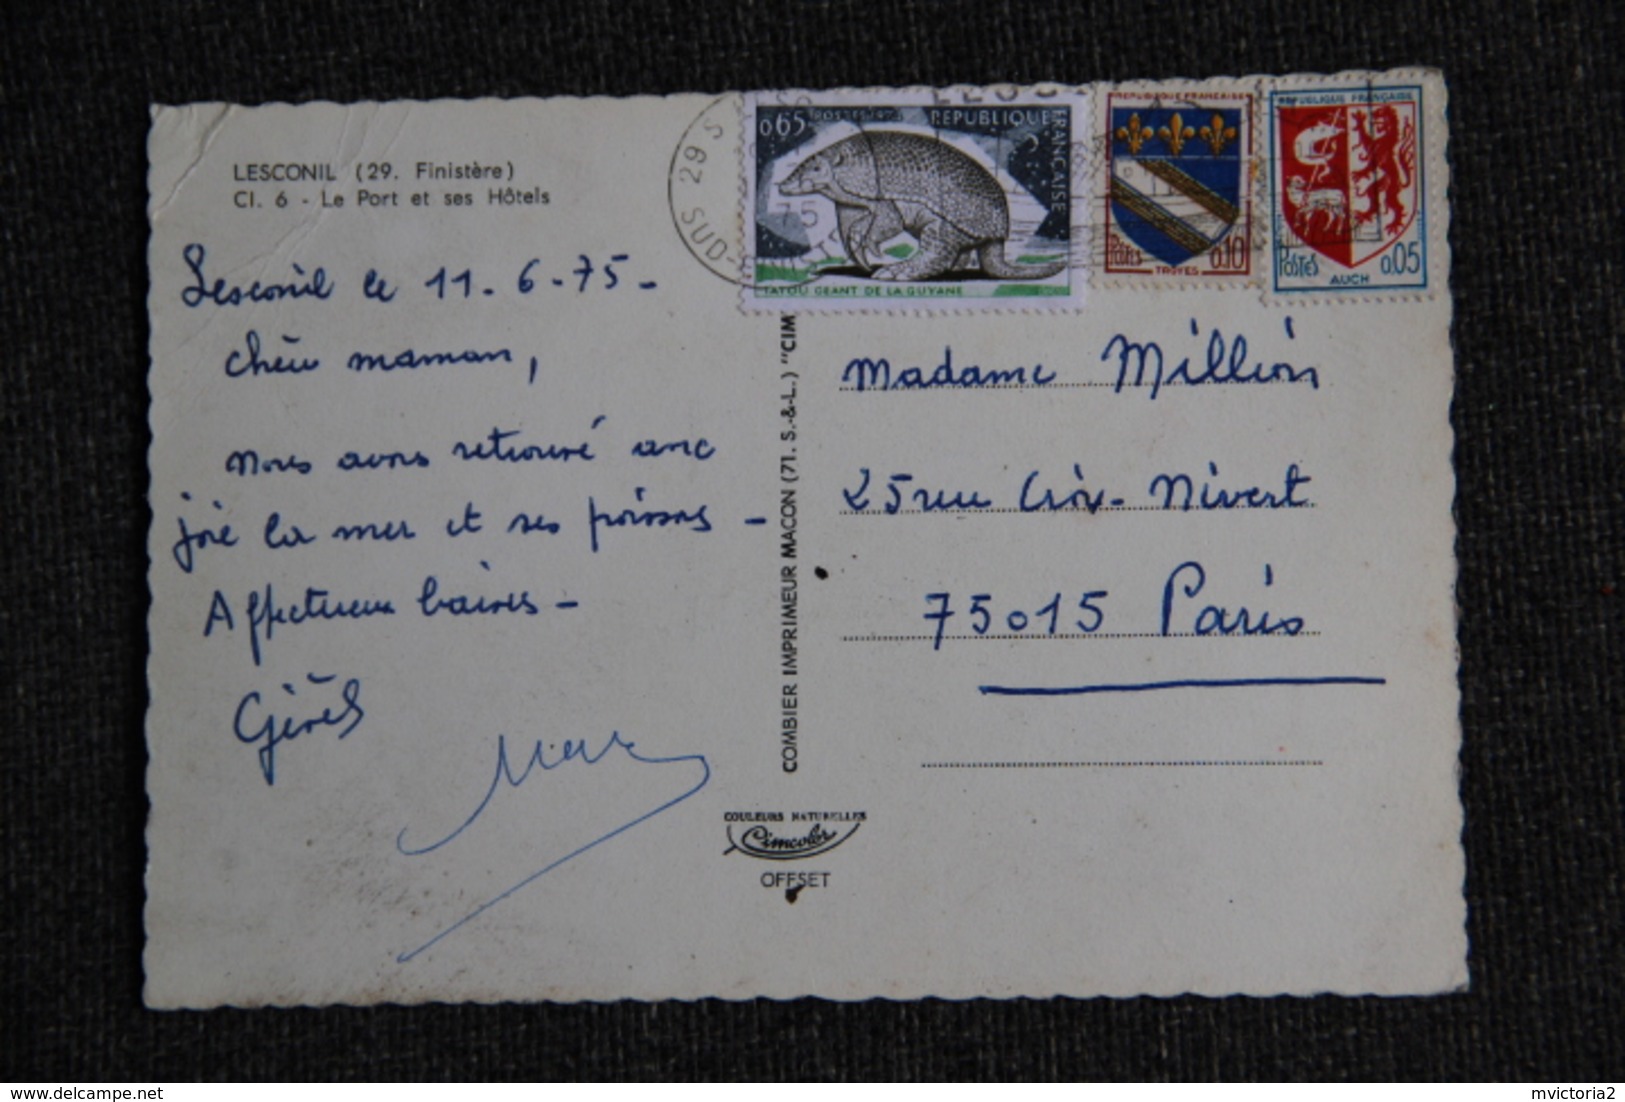 LESCONIL (29. Finistère)
CI. 6 - Le Port et ses Hôtels
Lesconil le 11-6-75-
chère maman,
Nous avons retrouvé avec
joie la mer et ses poissons -
Affectueux baisers -
29 S
SUD-FINISTÈRE
0,65 POSTES 1974 REPUBLIQUE
FRANÇAISE
TATOU GEANT DE LA GUYANE
REPUBLIQUE FRANCAISE
Postes 0,10
TROYES
REPUBLIQUE FRANÇAISE
POSTES 0.05
AUCH
COMBIER IMPRIMEUR MACON (71. S.-&-L.) "CIM
Madame Million
25 rue Croix-Nivert
75015 Paris
COULEURS NATURELLES
Cimcolor
OFFSET
mvictoria2